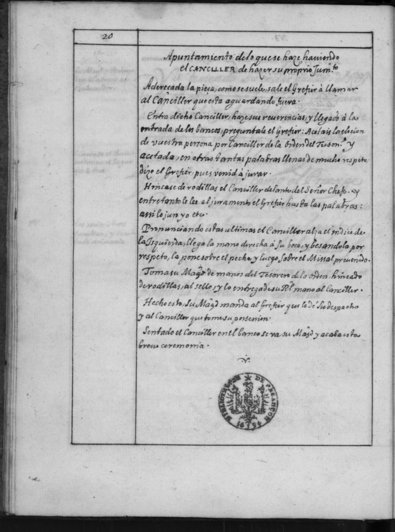 20
Apuntamiento de lo que se haze haviendo
el CANCILLER de hazer su proprio Jum.to
Aderezada la pieza, como se suele, sale el Grefier à llamar
al Canciller que està aguardando fuera.
Entra dicho Canciller, haze sus reverencias, y llegado à la
entrada de los bancos, preguntale el Grefier: Acetais la elecion
de vuestra persona por Canciller de la orden del Tuson? y
acetada, en otras tantas palabras llenas de mucho respeto
dize el Grefier, pues venid à jurar.
Hincase de rodillas el Canciller delante del Señor Chefe, y
entretanto le lee el juramento el Grefier hasta las palabras:
assi lo juro etc.
Pronunciando estas ultimas el Canciller alza el indice de
la Izquierda, llega la mano derecha à su boca, y besandola por
respeto, la pone sobre el pecho y luego sobre el Missal
Toma su Mag.d de manos del Tesorero de la orden hincado
de rodillas, el sello, y lo entrega de su Rl. mano al Canciller.
Hecho esto, su Mag.d manda al Grefier que le dè su despacho
y al Canciller que tome su possession.
Sentado el Canciller en el banco se va su Mag.d y acaba esta
breve ceremonia.